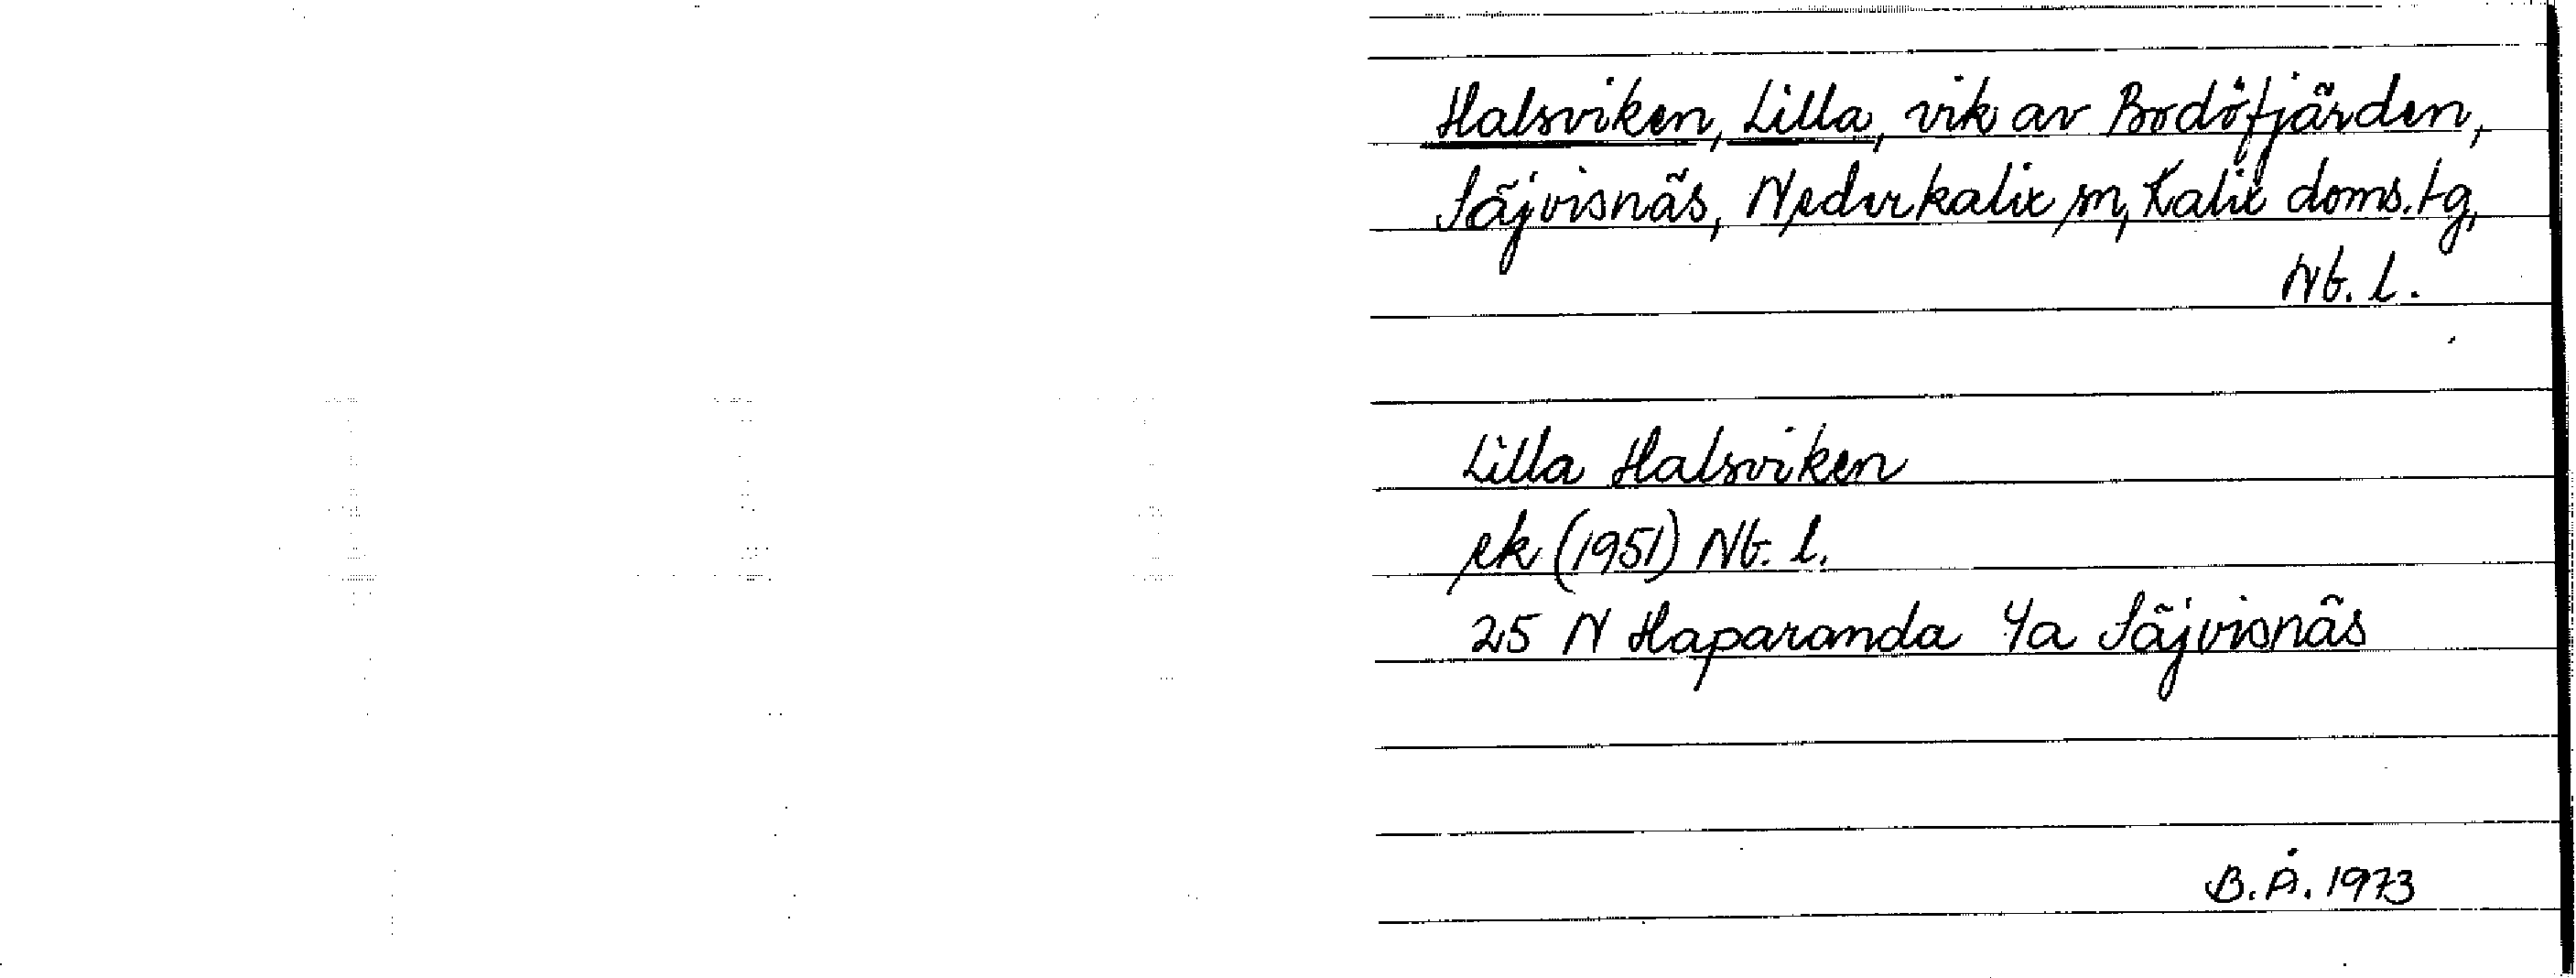 Halsviken, Lilla, vik av Bodöfjärden,
Säjvisnäs, Nederkalix sn, Kalix doms.tg,
Nb. l.
Lilla Halsviken
ek (1951) Nb. l.
25 N Haparanda 4a Säjvisnäs
B.Å. 1973